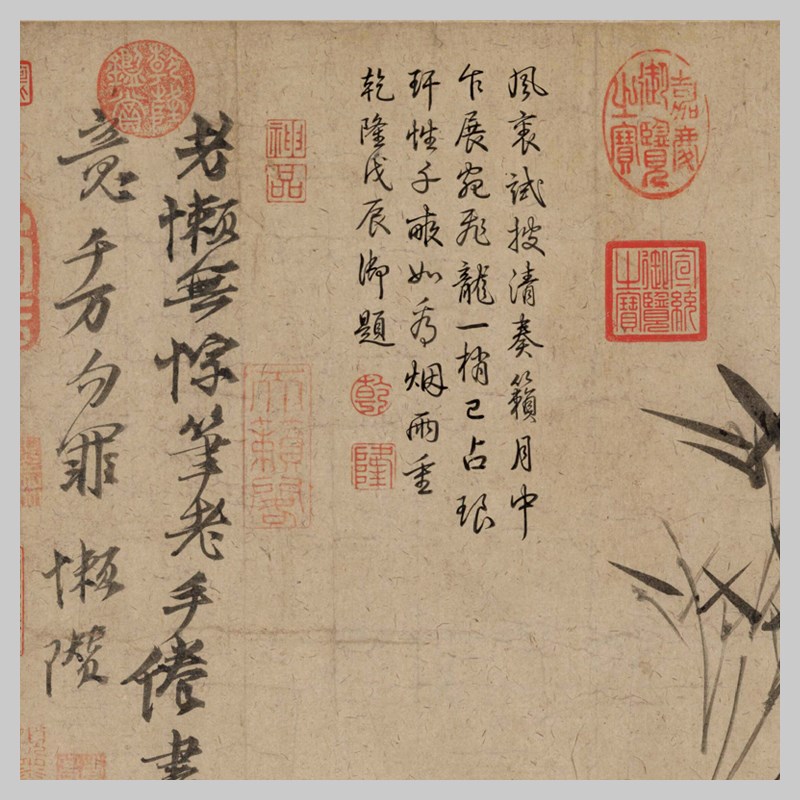 嘉慶御覽之寶
宣統御覽之寶
風裏試披清奏籟月中
乍展宛飛龍一梢已占琅
玕性千畝如為烟雨重
乾隆戊辰御題
乾
隆
神品
天籟閣
乾隆鑑賞
老懶無悰筆老手倦書
意千万勿罪 懶瓚